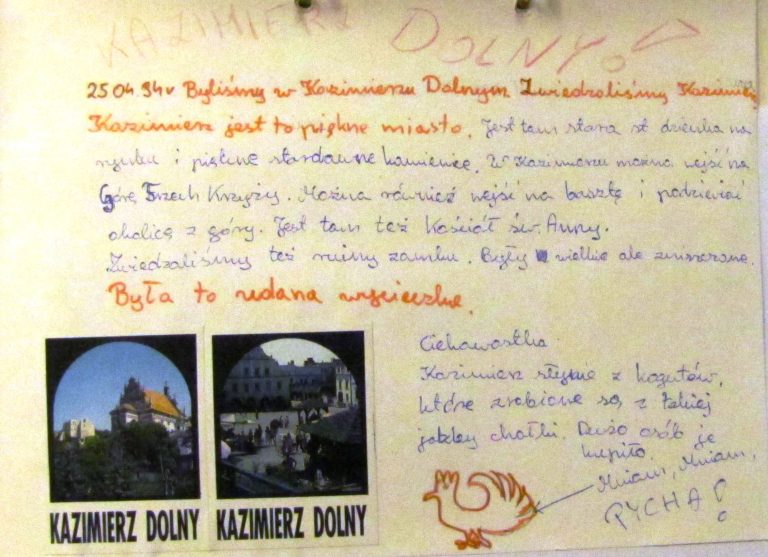 KAZIMIERZ DOLNY!
25.04.94r Byliśmy w Kazimierzu Dolnym Zwiedzaliśmy Kazimierz
Kazimierz jest to piękne miasto. Jest tam stara st dzienka na
rynku i piękne starodawne kamienice. W Kazimierzu można wejść na
Górę Trzech Krzyży. Można również wejść na basztę i podziewiać
okolicę z góry. Jest tam też Kościół św. Anny.
Zwiedzaliśmy też ruiny zamku. Były wielkie ale zniszczone.
Była to udana wycieczka.
Ciekawostka
Kazimierz słynie z kogutów,
które zrobione są z takiej
jakby chałki. Dużo osób je
kupiło.
Mniam, Mniam,
PYCHA!
KAZIMIERZ DOLNY
KAZIMIERZ DOLNY